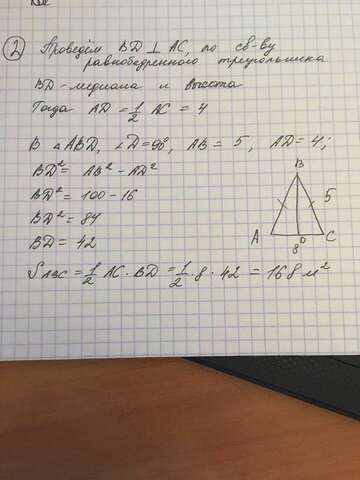 ② Проведём BD ⊥ AC, по св-ву
равнобедренного треугольника
BD - медиана и высота
Тогда AD = 1/2 AC = 4
В △ABD, ∠D = 90°, AB = 5, AD = 4;
BD² = AB² - AD²
BD² = 100 - 16
BD² = 84
BD = 42
S ABC = 1/2 AC · BD = 1/2 · 8 · 42 = 168 м²
B
5
A D C
8